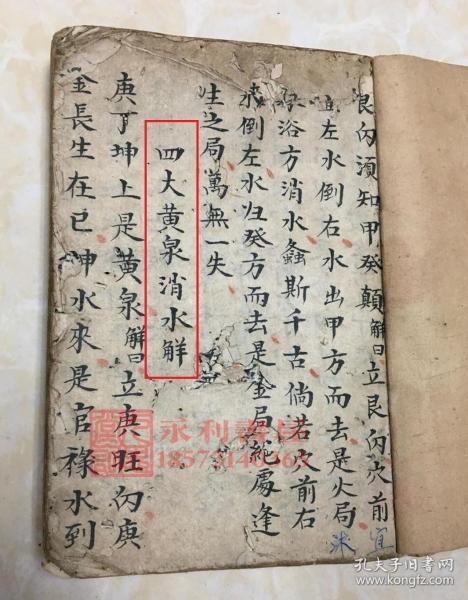 艮向須知甲癸顛解曰立艮向穴前
左水倒右水出甲方而去是火局
浴方消水螽斯千古倘若穴前右
水倒左水归癸方而去是金局絶處逢
生之局萬無一失
四大黄泉消水解
庚丁坤上是黄泉解曰立庚旺向庚
金長生在巳坤水來是官祿水到
宜
沐
永利書屋
18573140365
孔夫子旧书网
www.kongfz.com